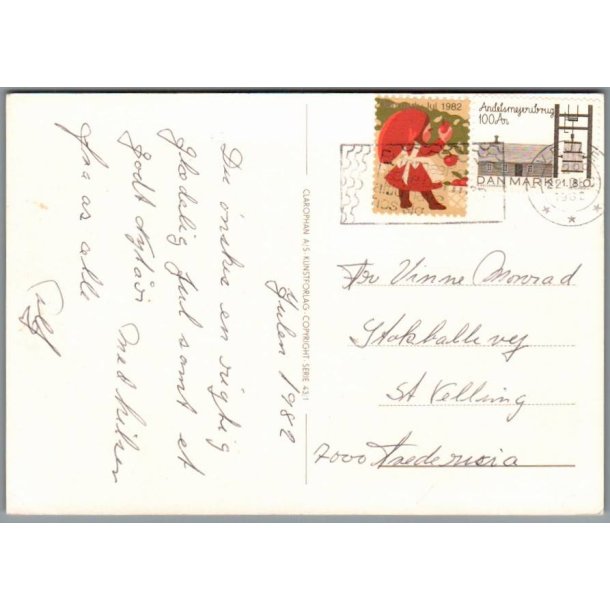 Julen 1982
Du ønskes en rigtig
Glædelig Jul samt et
godt Nytår med hilsen
fra os alle
CLAROPHAN A/S KUNSTFORLAG COPYRIGHT SERIE 431
Jul 1982
Andelsmejeribrug
100 År
DANMARK
Fru Vinne Monrad
Stokballe vej
St Velling
7000 Fredericia